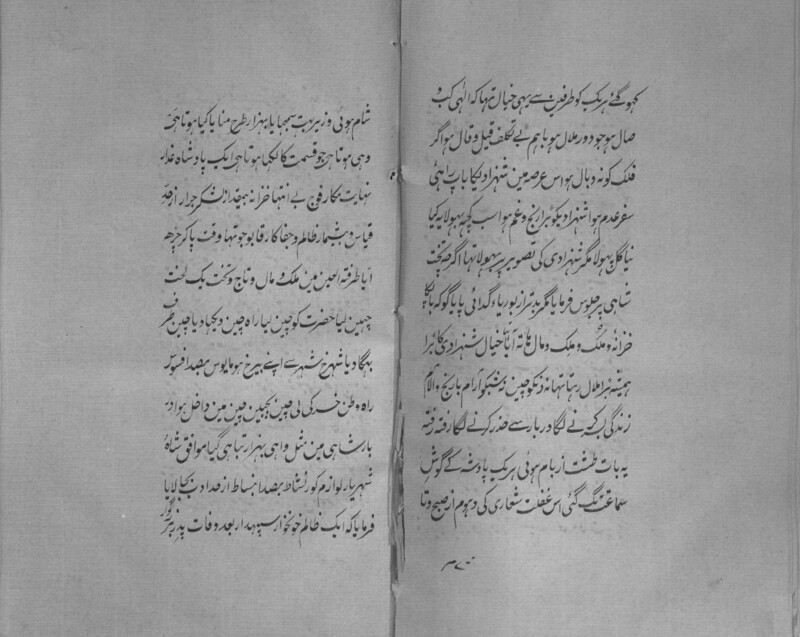 کہو گئے ہر یک کو طرفین سے یہی خیال تہا کہ الٰہی کب و
صال ہو جو دور ملال ہو باہم بے تکلف قیل و قال ہو اگر
فلک کو نہ وبال ہو اس عرصہ مین شہزادیکا باپ راہئی
سفر عدم ہوا شہزادیکو بڑا رنج و غم ہوا سب کچہہ بہولا یہ کیا
نیا گل پہولا مگر شہزادی کی تصویر پر بہولا تہا اگرچہ تخت
شاہی پر جلوس فرمایا مگر بدتر از بوریاء گدائی پایا گو کہ
خزانہ و ملک و مال ہاتہ آیا خیال شہزادی کا بڑا
ہمیشہ بڑا ملال رہتا تہا نہ دنکو چین نہ شبکو آرام با رنج و آلام
زندگی بسر کرنے لگا دربار سے حذر کرنے لگا رفتہ رفتہ
یہ بات طشت از بام ہوئی ہر یک بادشہ کے گوش
سماعت تک گئی اس غفلت شعاری کی دہوم از صبح و تا
شام ہوئی وزیر نے بہت سمجہایا بہزار طرح منایا کیا ہوتا ہی
وہی ہوتا ہی جو قسمت کا لکہا ہوتا ہی ایک پادشاہ غدار
نہایت مکار فوج بے انتہا خزانہ بیمقدار لشکر جرار از حد
قیاس و بشمار ظالم و جفا کار قابو جو تہا وقت پاکر چڑہ
آیا طرفۃ العین مین ملک و مال و تاج و تخت یک لخت
چہین لیا حضرت کو چین لیا راہ چین دیکہا دیا چین طرف
بہگا دیا شہر خ شہر سے اپنے بیرخ ہو مایوس بصد افسوس
راہ وطن خسر کی لی چین بجبین چین مین داخل ہوا در
بار شاہی مین مثل واہی بہزار تباہی گیا موافق شاہ
شہریار لوازم کورنشات بصد انبساط از حد ادب بجا لایا
فرمایا کہ ایک ظالم خونخوار سپہدار بعد وفات پدر بزرگوار